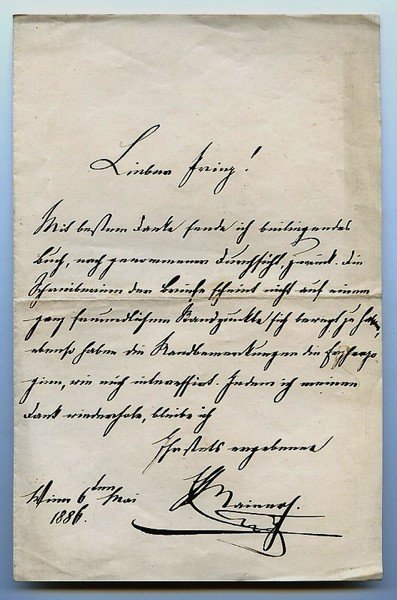 Lieber Prinz!
Mit bestem Danke sende ich beiliegendes
Buch, nach genommener Durchsicht, zurück. Die
Schreiberin der Briefe scheint nicht auf einem
ganz freundlichen Standpunkte sich bewegt zu haben,
ebenso haben die Randbemerkungen die Erzherzo
ginn, wie mich interessirt. Indem ich meinen
Dank wiederhole, bleibe ich
Ihr stets ergebener
Wien 6ten Mai
1886.
Rainer